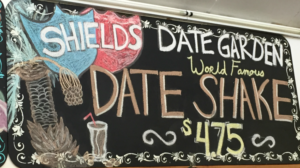 SHIELDS DATE GARDEN
World Famous
DATE SHAKE
$4.75